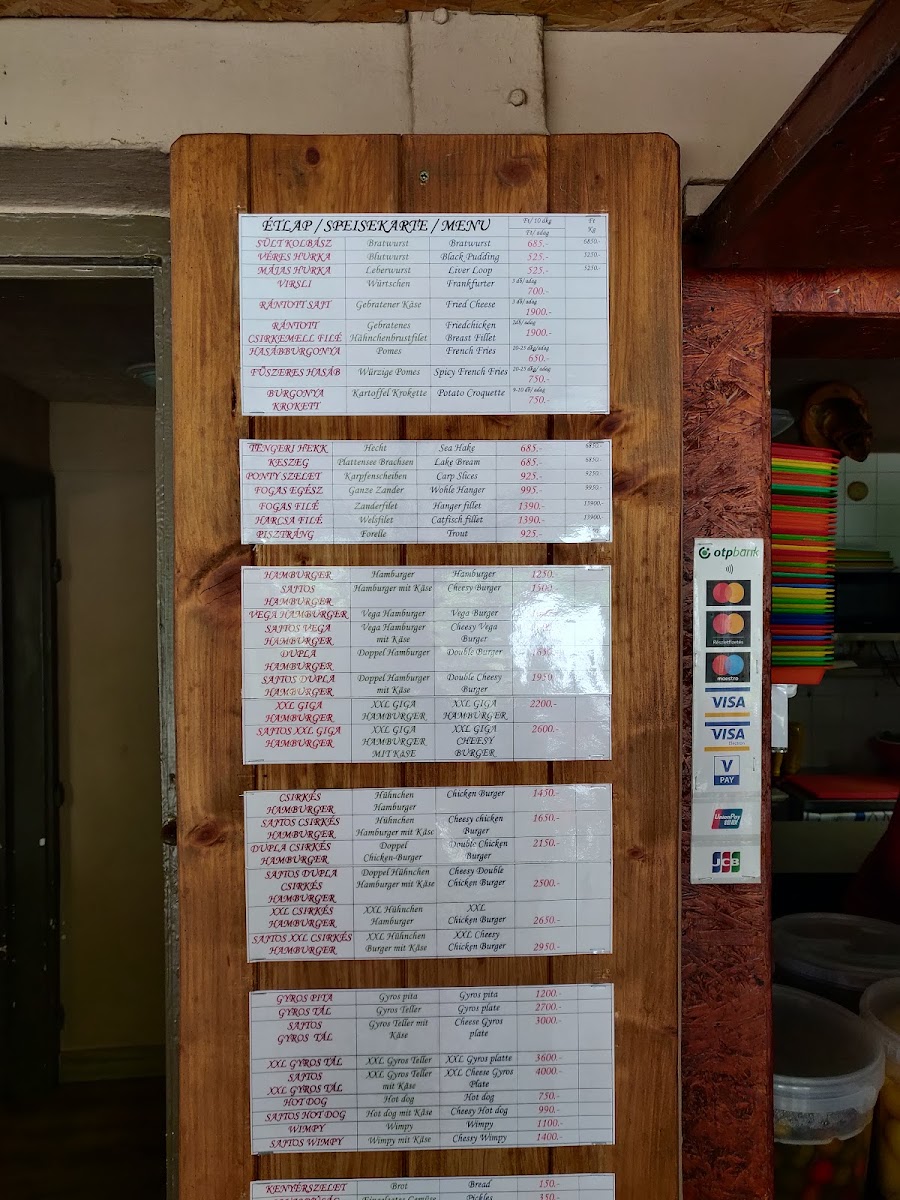 ÉTLAP / SPEISEKARTE / MENU Ft/ 10 dkg Ft/ adag Ft Kg
SÜLT KOLBÁSZ Bratwurst Bratwurst 685.- 6850.-
VÉRES HURKA Blutwurst Black Pudding 525.- 5250.-
MÁJAS HURKA Leberwurst Liver Loop 525.- 5250.-
VIRSLI Würtschen Frankfurter 700.-
RÁNTOTT SAJT Gebratener Käse Fried Cheese 1900.-
RÁNTOTT CSIRKEMELL FILÉ Gebratenes Hähnchenbrustfilet Friedchicken Breast Fillet 1900.-
HASÁBBURGONYA Pomes French Fries 20-25 dkg/adag 650.-
FŰSZERES HASÁB Würzige Pomes Spicy French Fries 20-25 dkg/adag 750.-
BURGONYA KROKETT Kartoffel Krokette Potato Croquette 9-10 db/ adag 750.-
TENGERI HEKK Hecht Sea Hake 685.- 6850.-
KESZEG Plattensee Brachsen Lake Bream 685.- 6850.-
PONTY SZELET Karpfenscheiben Carp Slices 925.- 9250.-
FOGAS EGÉSZ Ganze Zander Wohle Hanger 995.- 9950.-
FOGAS FILÉ Zanderfilet Hanger fillet 1390.- 13900.-
HARCSA FILÉ Welsfilet Catfisch fillet 1390.- 13900.-
PISZTRÁNG Forelle Trout 925.-
HAMBURGER Hamburger Hamburger 1250.-
SAJTOS HAMBURGER Hamburger mit Käse Cheesy Burger 1500.-
VEGA HAMBURGER Vega Hamburger Vega Burger
SAJTOS VEGA HAMBURGER Vega Hamburger mit Käse Cheesy Vega Burger
DUPLA HAMBURGER Doppel Hamburger Double Burger
SAJTOS DUPLA HAMBURGER Doppel Hamburger mit Käse Double Cheesy Burger 1950.-
XXL GIGA HAMBURGER XXL GIGA HAMBURGER XXL GIGA HAMBURGER 2200.-
SAJTOS XXL GIGA HAMBURGER XXL GIGA HAMBURGER MIT KÄSE XXL GIGA CHEESY BURGER 2600.-
CSIRKÉS HAMBURGER Hühnchen Hamburger Chicken Burger 1450.-
SAJTOS CSIRKÉS HAMBURGER Hühnchen Hamburger mit Käse Cheesy chicken Burger 1650.-
DUPLA CSIRKÉS HAMBURGER Doppel Chicken-Burger Double Chicken Burger 2150.-
SAJTOS DUPLA CSIRKÉS HAMBURGER Doppel Hühnchen Hamburger mit Käse Cheesy Double Chicken Burger 2500.-
XXL CSIRKÉS HAMBURGER XXL Hühnchen Hamburger XXL Chicken Burger 2650.-
SAJTOS XXL CSIRKÉS HAMBURGER XXL Hühnchen Burger mit Käse XXL Cheezy Chicken Burger 2950.-
GYROS PITA Gyros pita Gyros pita 1200.-
GYROS TÁL Gyros Teller Gyros plate 2700.-
SAJTOS GYROS TÁL Gyros Teller mit Käse Cheese Gyros plate 3000.-
XXL GYROS TÁL XXL Gyros Teller XXL Gyros platte 3600.-
SAJTOS XXL GYROS TÁL XXL Gyros Teller mit Käse XXL Cheese Gyros Plate 4000.-
HOT DOG Hot dog Hot dog 750.-
SAJTOS HOT DOG Hot dog mit Käse Cheesy Hot dog 990.-
WIMPY Wimpy Wimpy 1100.-
SAJTOS WIMPY Wimpy mit Käse Chessy Wimpy 1400.-
KENYÉRSZELET Brot Bread 150.-
Eingelegtes Gemüse Pickles 350.-
otpbank
mastercard
mastercard
Részletfizetés
maestro
VISA
VISA
Electron
V PAY
UnionPay
银联
JCB